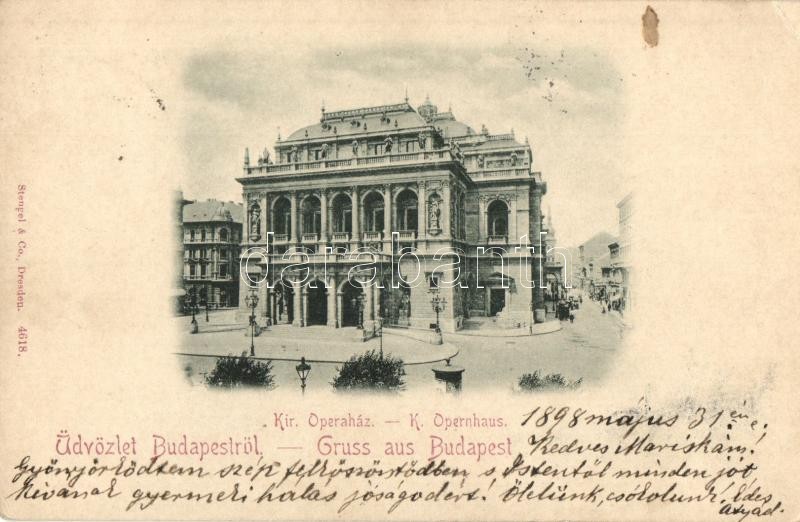 darabanth
Stengel & Co., Dresden. 4618.
Kir. Operaház. — K. Opernhaus.
Üdvözlet Budapestről. — Gruss aus Budapest
1898 május 31 én
Kedves Mariskám!
Gyönyörködtem szép felköszöntődben s Istentől minden jót
kívánok gyermeki hálás jóságodért! Ölelünk, csókolunk! Édes
atyád.